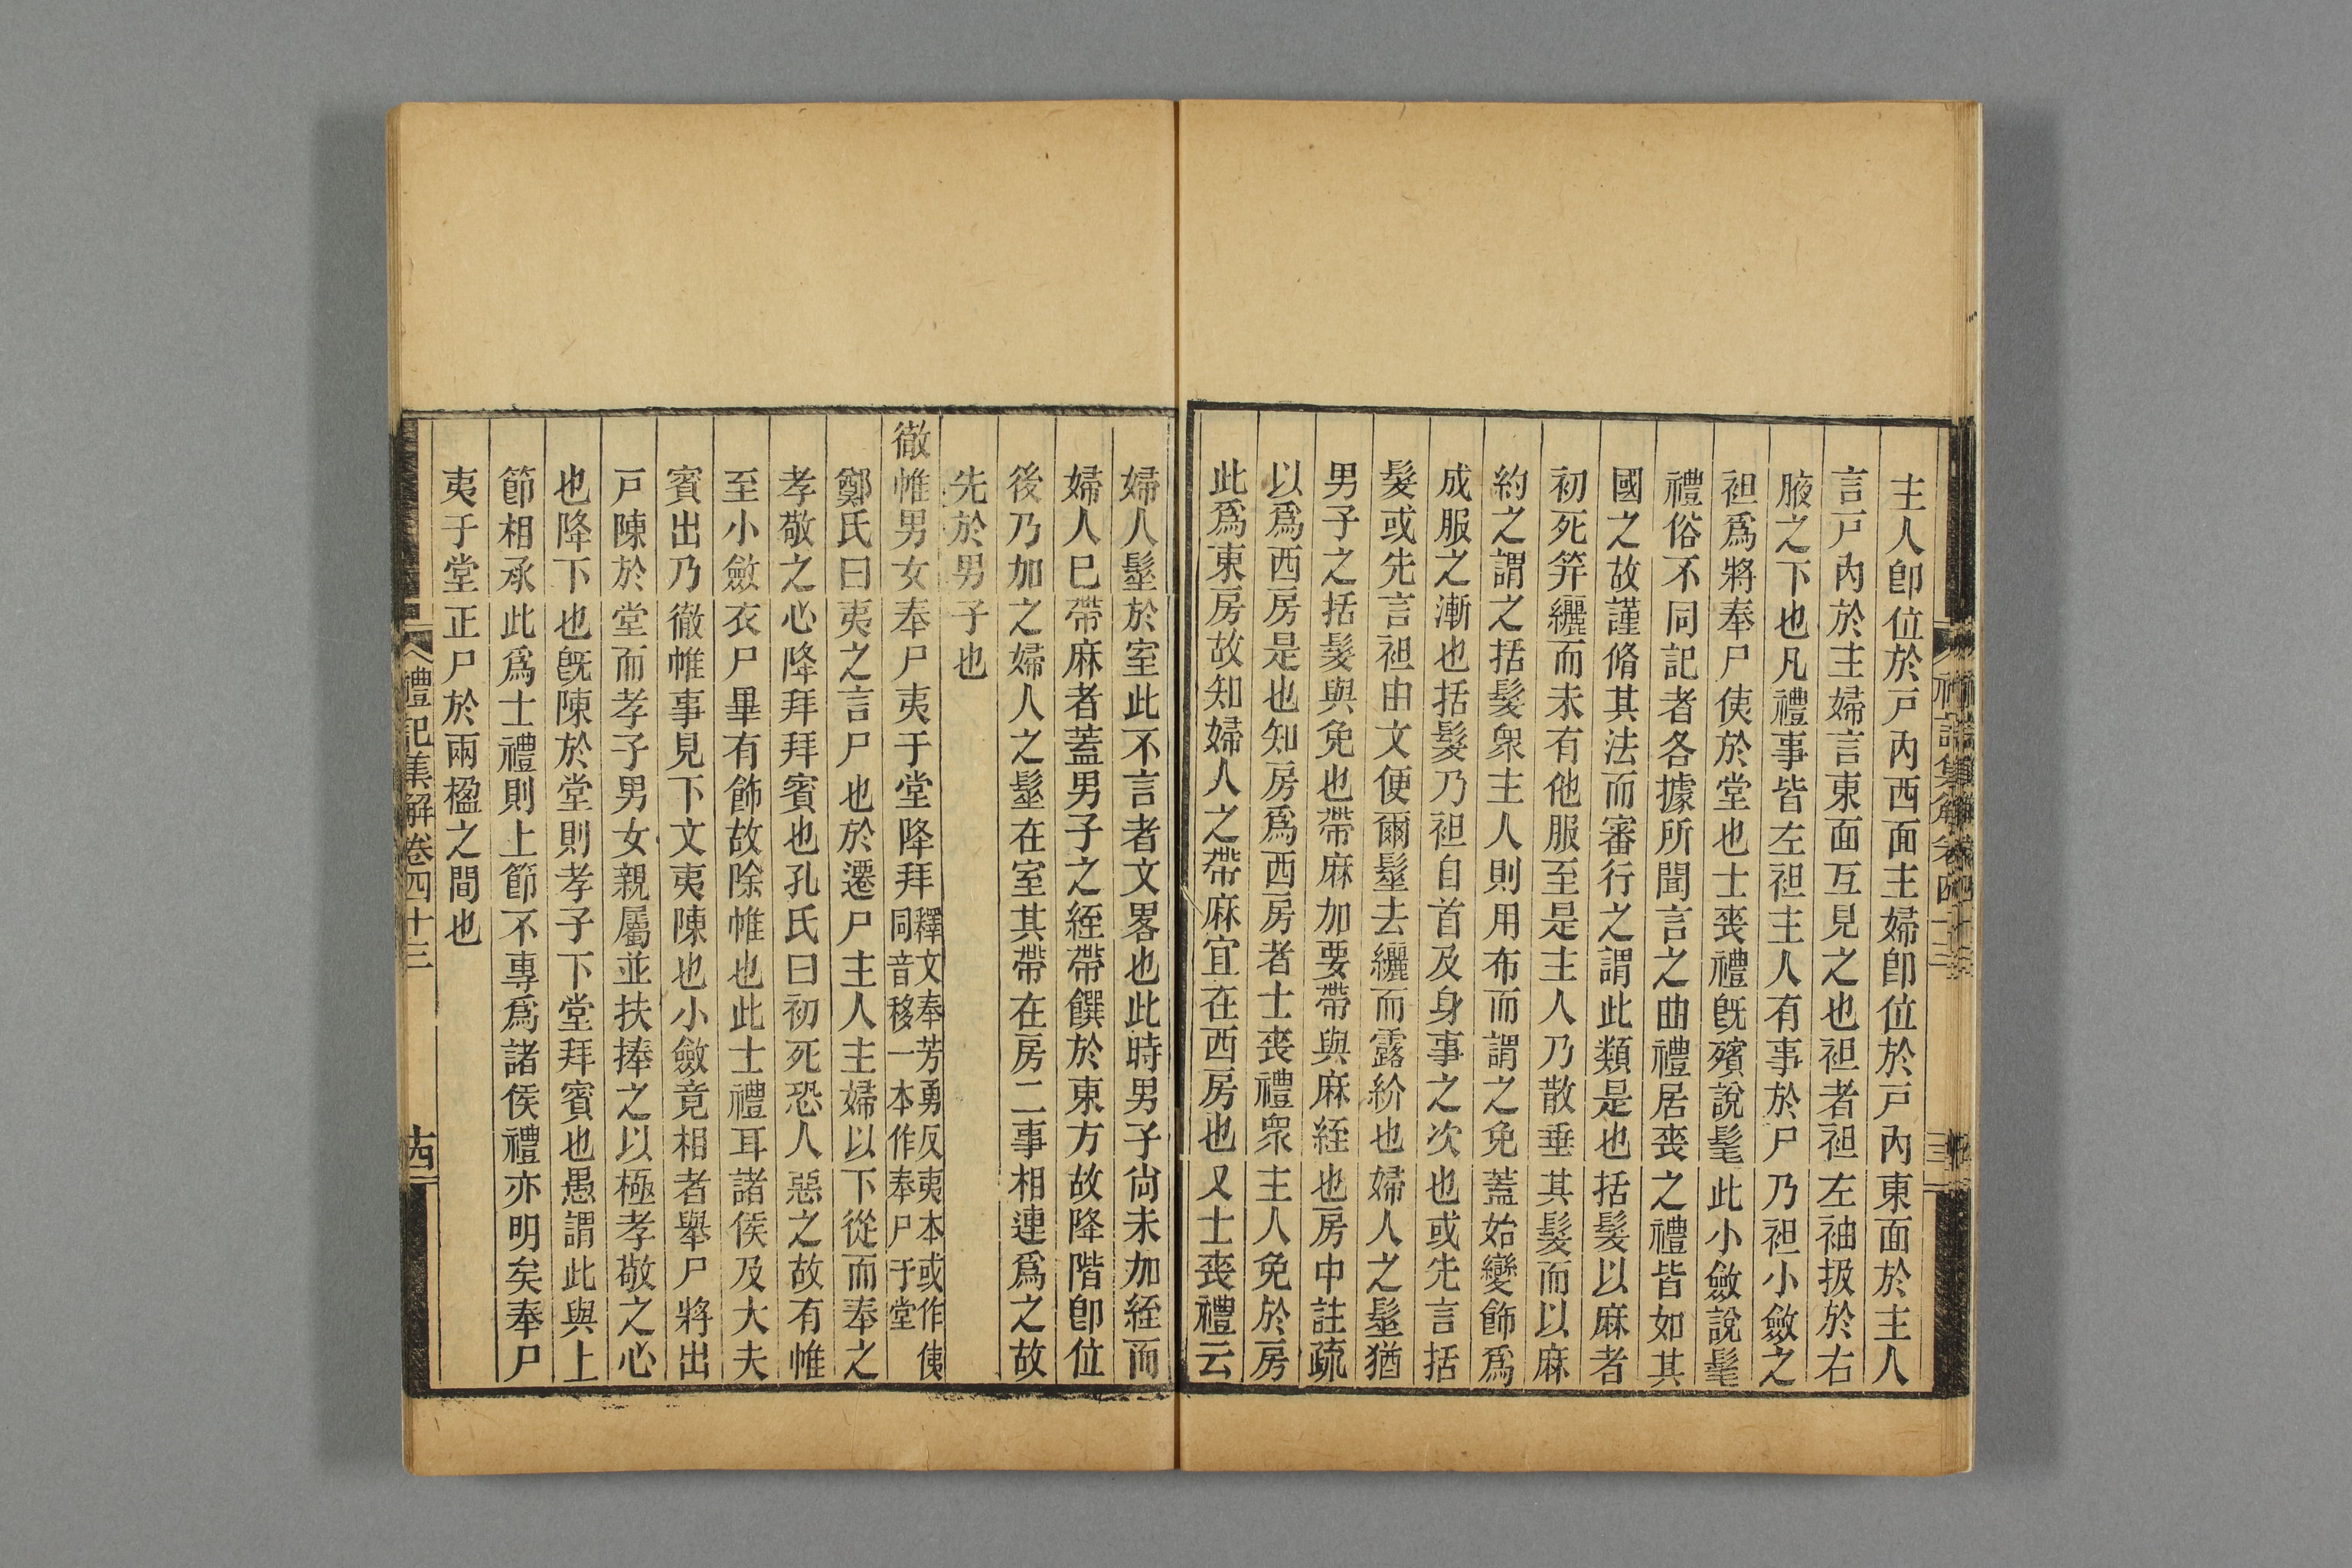 主人卽位於戸内西面主婦卽位於戸内東面於主人
言戸内於主婦言東面互見之也袒者袒左袖扱於右
腋之下也凡禮事皆左袒主人有事於尸乃袒小斂之
袒爲將奉尸使於堂也士喪禮旣殯說髦此小斂說髦
禮俗不同記者各據所聞言之曲禮居喪之禮皆如其
國之故謹脩其法而審行之謂此類是也括髮以麻者
初死笄纚而未有他服至是主人乃散垂其髮而以麻
約之謂之括髮衆主人則用布而謂之免蓋始變飾爲
成服之漸也括髮乃袒自首及身事之次也或先言括
髮或先言袒由文便爾髽去纚而露紒也婦人之髽猶
男子之括髮與免也帶麻加要帶與麻絰也房中註疏
以爲西房是也知房爲西房者士喪禮衆主人免於房
此爲東房故知婦人之帶麻宜在西房也又士喪禮云
婦人髽於室此不言者文畧也此時男子尙未加絰而
婦人巳帶麻者蓋男子之絰帶饌於東方故降階卽位
後乃加之婦人之髽在室其帶在房二事相連爲之故
先於男子也
徹帷男女奉尸夷于堂降拜釋文奉芳勇反夷本或作侇
同音移一本作奉尸于堂
鄭氏曰夷之言尸也於遷尸主人主婦以下從而奉之
孝敬之心降拜拜賓也孔氏曰初死恐人惡之故有帷
至小斂衣尸畢有飾故除帷也此士禮耳諸侯及大夫
賓出乃徹帷事見下文夷陳也小斂竟相者舉尸將出
戸陳於堂而孝子男女親屬並扶捧之以極孝敬之心
也降下也旣陳於堂則孝子下堂拜賓也愚謂此與上
節相承此爲士禮則上節不專爲諸侯禮亦明矣奉尸
夷于堂正尸於兩楹之間也
禮記集解卷四十三
十四